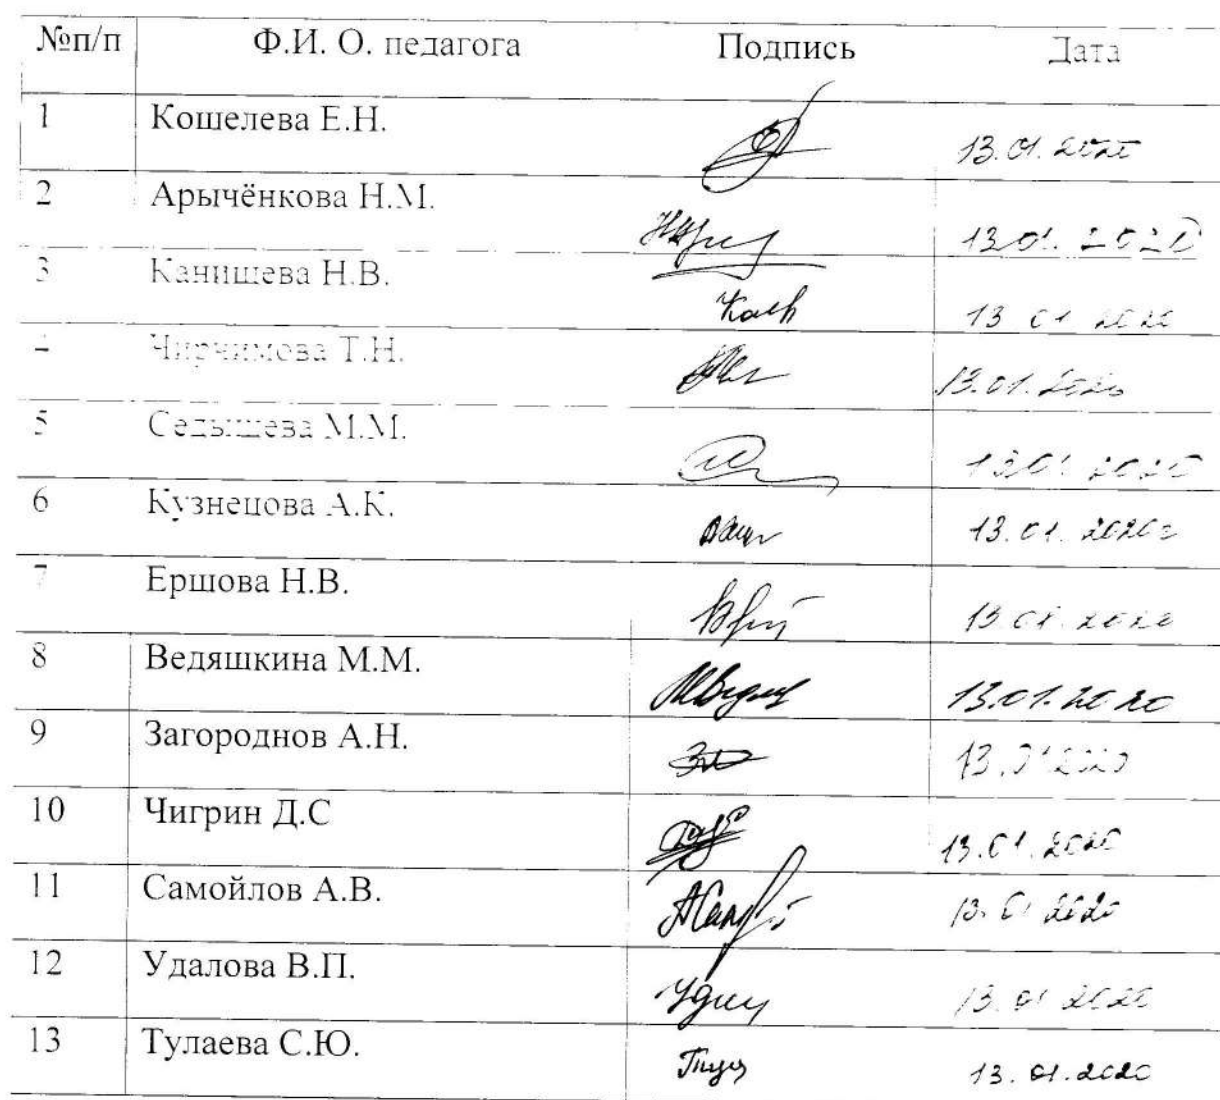 №п/п Ф.И. О. педагога Подпись Дата
1 Кошелева Е.Н. 13.01.2020
2 Арычёнкова Н.М. 13.01.2020
3 Канишева Н.В. 13 01 2020
4 Чирчимова Т.Н. 13.01.2020
5 Седышева М.М. 13 01 2020
6 Кузнецова А.К. 13.01.2020г
7 Ершова Н.В. 13.01.2020
8 Ведяшкина М.М. 13.01.2020
9 Загороднов А.Н. 13.01 2020
10 Чигрин Д.С 13.01.2020
11 Самойлов А.В. 13.01 2020
12 Удалова В.П. 13.01 2020
13 Тулаева С.Ю. 13.01.2020